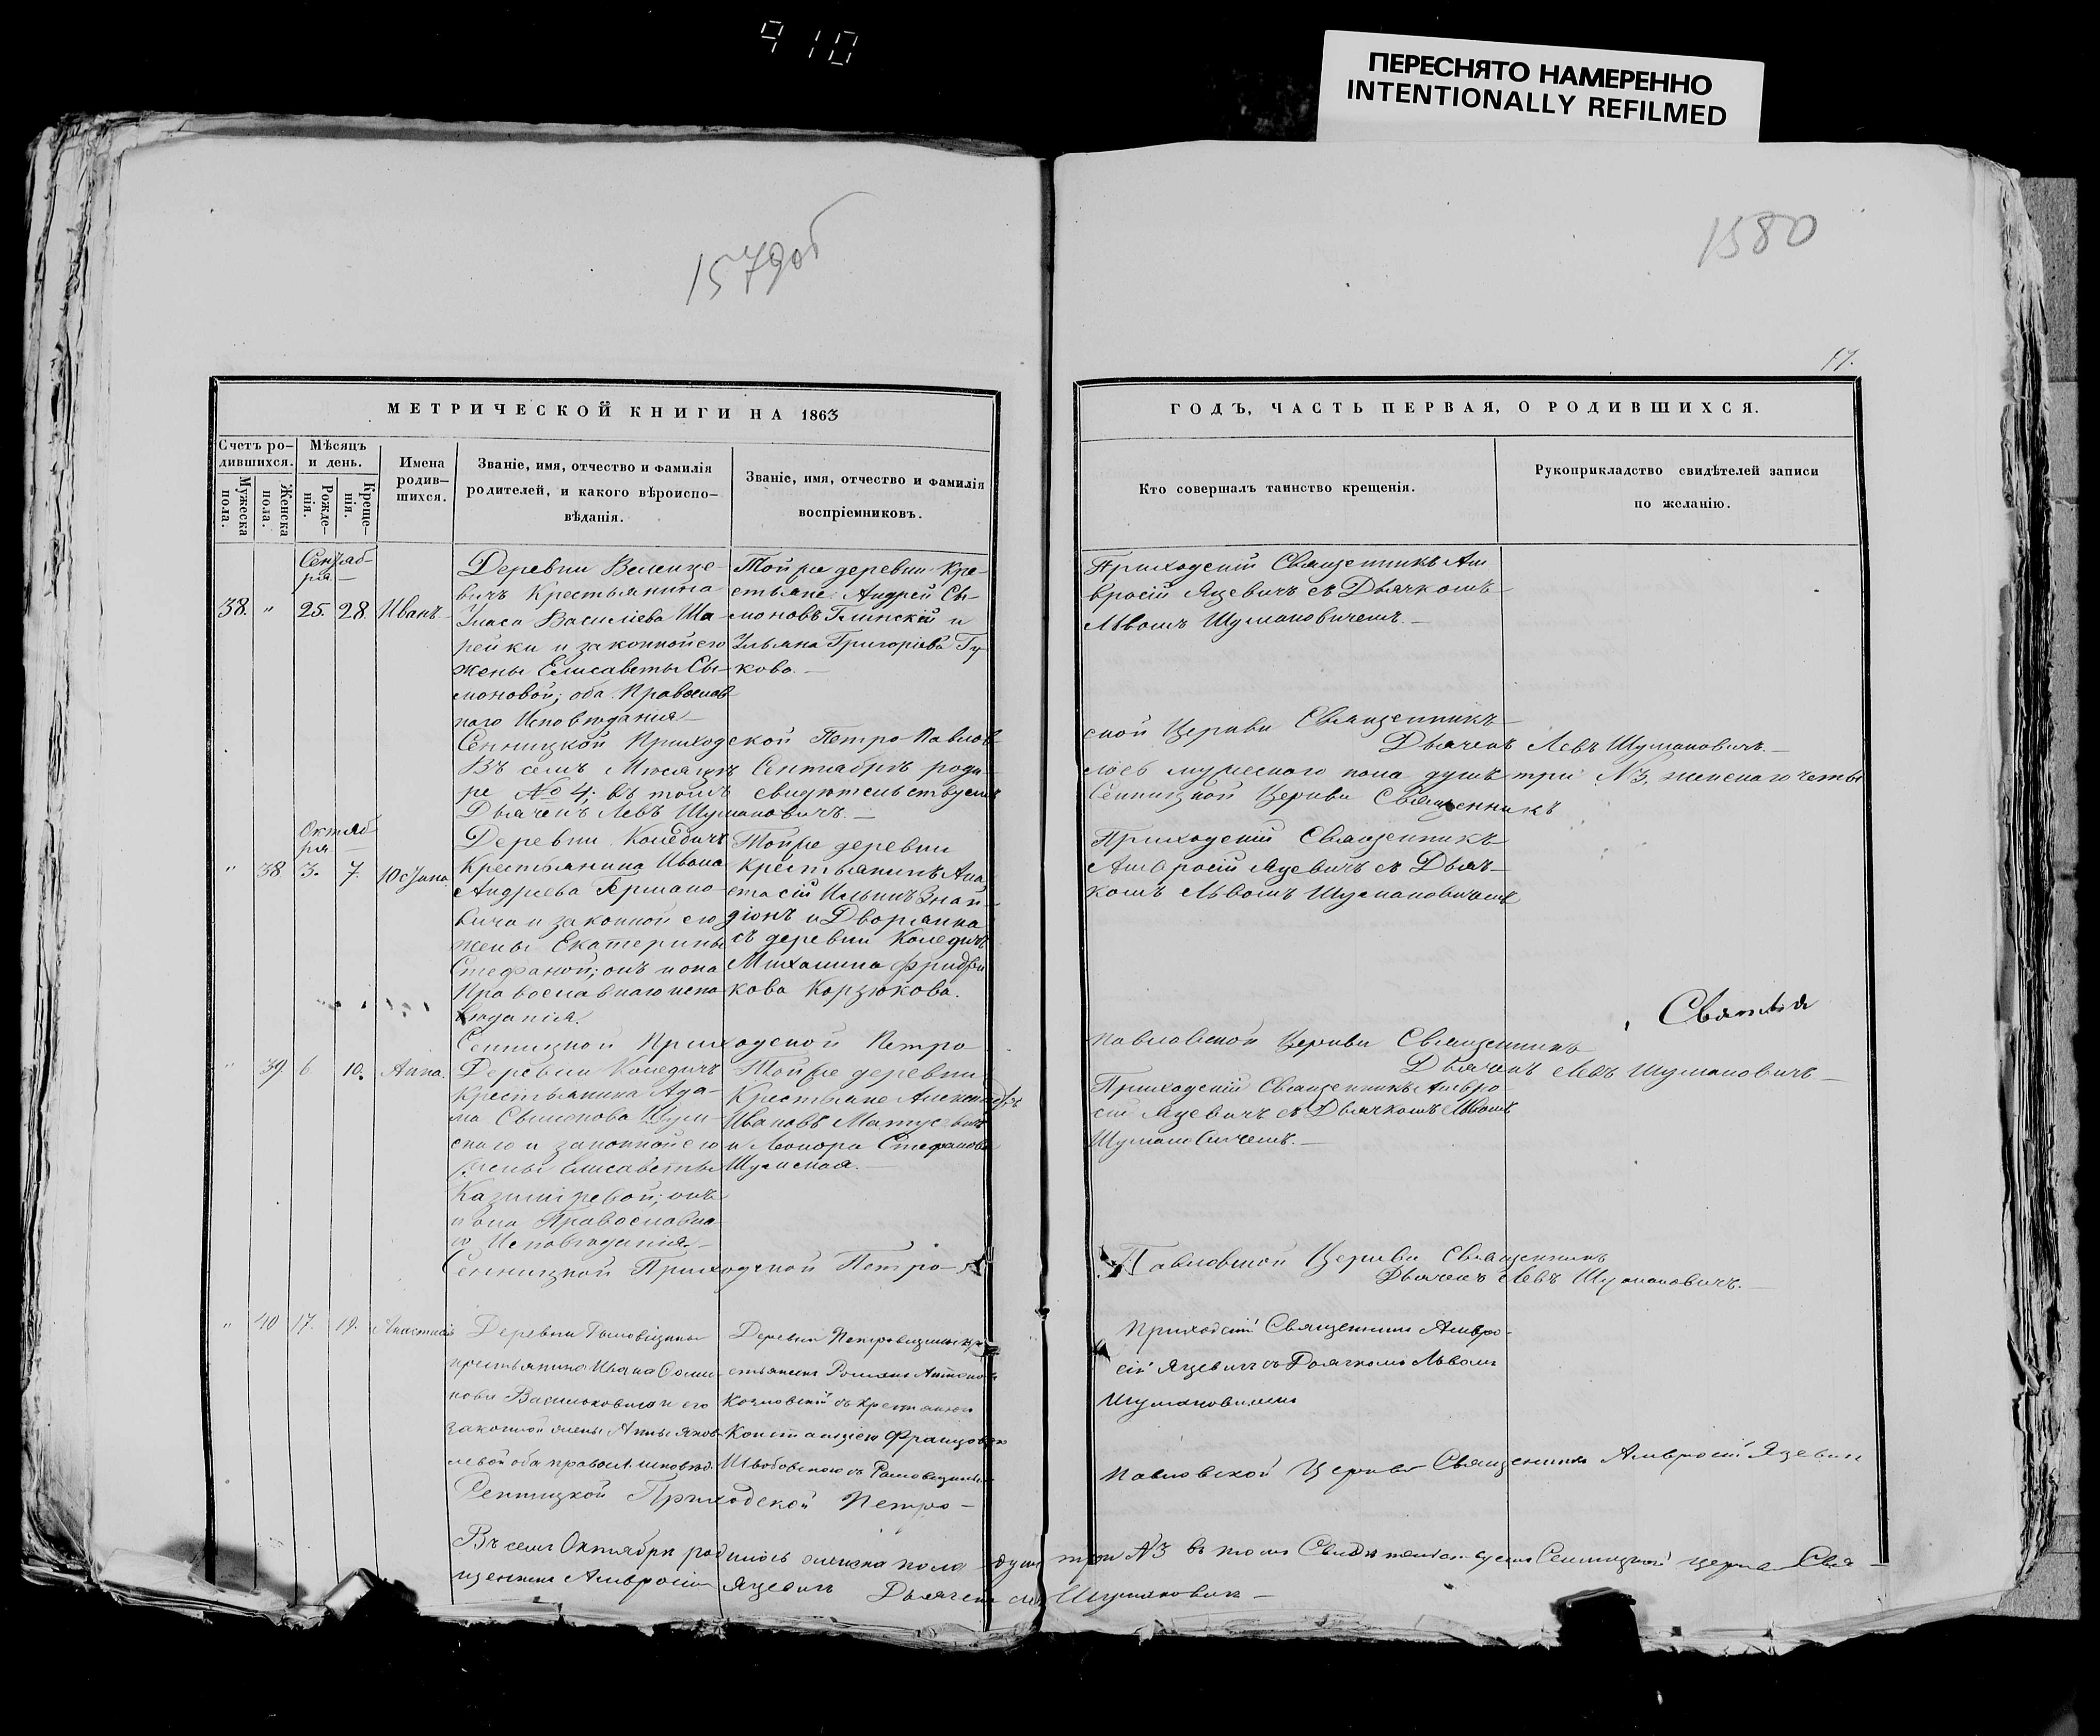 910
ПЕРЕСНЯТО НАМЕРЕННО
INTENTIONALLY REFILMED
1579об
1580
17.
МЕТРИЧЕСКОЙ КНИГИ НА 1863
ГОДЪ, ЧАСТЬ ПЕРВАЯ, О РОДИВШИХСЯ.
Счетъ ро-
дившихся.
Мужеска пола.
Женска пола.
Мѣсяцъ
и день.
Рожде-
нія.
Креще-
нія.
Имена
родив-
шихся.
Званіе, имя, отчество и фамилія
родителей, и какого вѣроиспо-
вѣданія.
Званіе, имя, отчество и фамилія
воспріемниковъ.
Кто совершалъ таинство крещенія.
Рукоприкладство свидѣтелей записи
по желанію.
Сентяб-
ря
38. " 25. 28. Иванъ
Деревни
вичъ Крестьянина
Власа Василіева Ша-
рейки и законной его
жены Елисаветы Сы-
моновой; оба Православ
наго Исповѣданія
Тойже деревни Кре-
стьяне: Андрей Сы-
моновъ Глинскій и
Ульяна Григоріева Гу-
кова.
Приходскій Священникъ Ам
вросій Яцевичъ съ Дьячкомъ
Львомъ Шумановичемъ.
Сенницкой Приходской Петро-Павлов-
ской Церкви Священникъ
Дьячекъ Левъ Шумановичъ.
Въ семъ Мѣсяцѣ Сентябрѣ роди-
лось мужескаго пола душъ три №3, женскаго четы
ре № 4; въ томъ свидѣтельствуемъ
Сенницкой Церкви Священникъ
Дьячекъ Левъ Шумановичъ.
Октяб
ря
" 38 3. 7. Юсѣина
Деревни Коледичъ
Крестьянина Ивана
Андреева Германо-
вича и законной его
жены Екатерины
Стефановой; онъ и она
Православнаго испо-
вѣданія.
Тойже деревни
Крестьянинъ Ана
стасій Ильинъ
и Дворянка
съ деревни Коледичъ
Михалина Фридри
кова Корзюкова.
Приходскій Священникъ
Амвросій Яцевичъ съ Дьяч-
комъ Львомъ Шумановичемъ
Сенницкой Приходской Петро
Павловской Церкви Священникъ
Дьячекъ Левъ Шумановичъ
" 39. 6. 10. Анна.
Деревни Коледичъ
Крестьянина Ада-
ма Сымонова Шум-
скаго и законной его
жены Елисаветы
Казиміровой; онъ
и она Православна
го Исповѣданія.
Тойже деревни
Крестьяне Александръ
Ивановъ Матусевичъ
и Леонора Стефанова
Шумская.
Приходскій Священникъ Амвро-
сій Яцевичъ съ Дьячкомъ Львомъ
Шумановичемъ.
Сенницкой Приходской Петро-
Павловской Церкви Священникъ
Дьячекъ Левъ Шумановичъ.
" 40 17. 19. Анастасія
Деревни
крестьянина Ивана
нова Васильковича и его
законной жены Анны Яков-
левой оба правосл. исповѣд.
Деревни
Романъ Антоновъ
Козловскій съ
Констанціею Францовою
Приходскій Священникъ Амвро-
сій Яцевичъ съ Дьячкомъ Львомъ
Шумановичемъ
Сенницкой Приходской Петро-
Павловской Церкви Священникъ Амвросій Яцевичъ
Въ семъ Октябрѣ родилось женска пола душъ три №3 въ томъ Свидѣтельствуемъ Сенницкой церкви Свя-
щенникъ Амвросій Яцевичъ Дьячекъ Левъ Шумановичъ